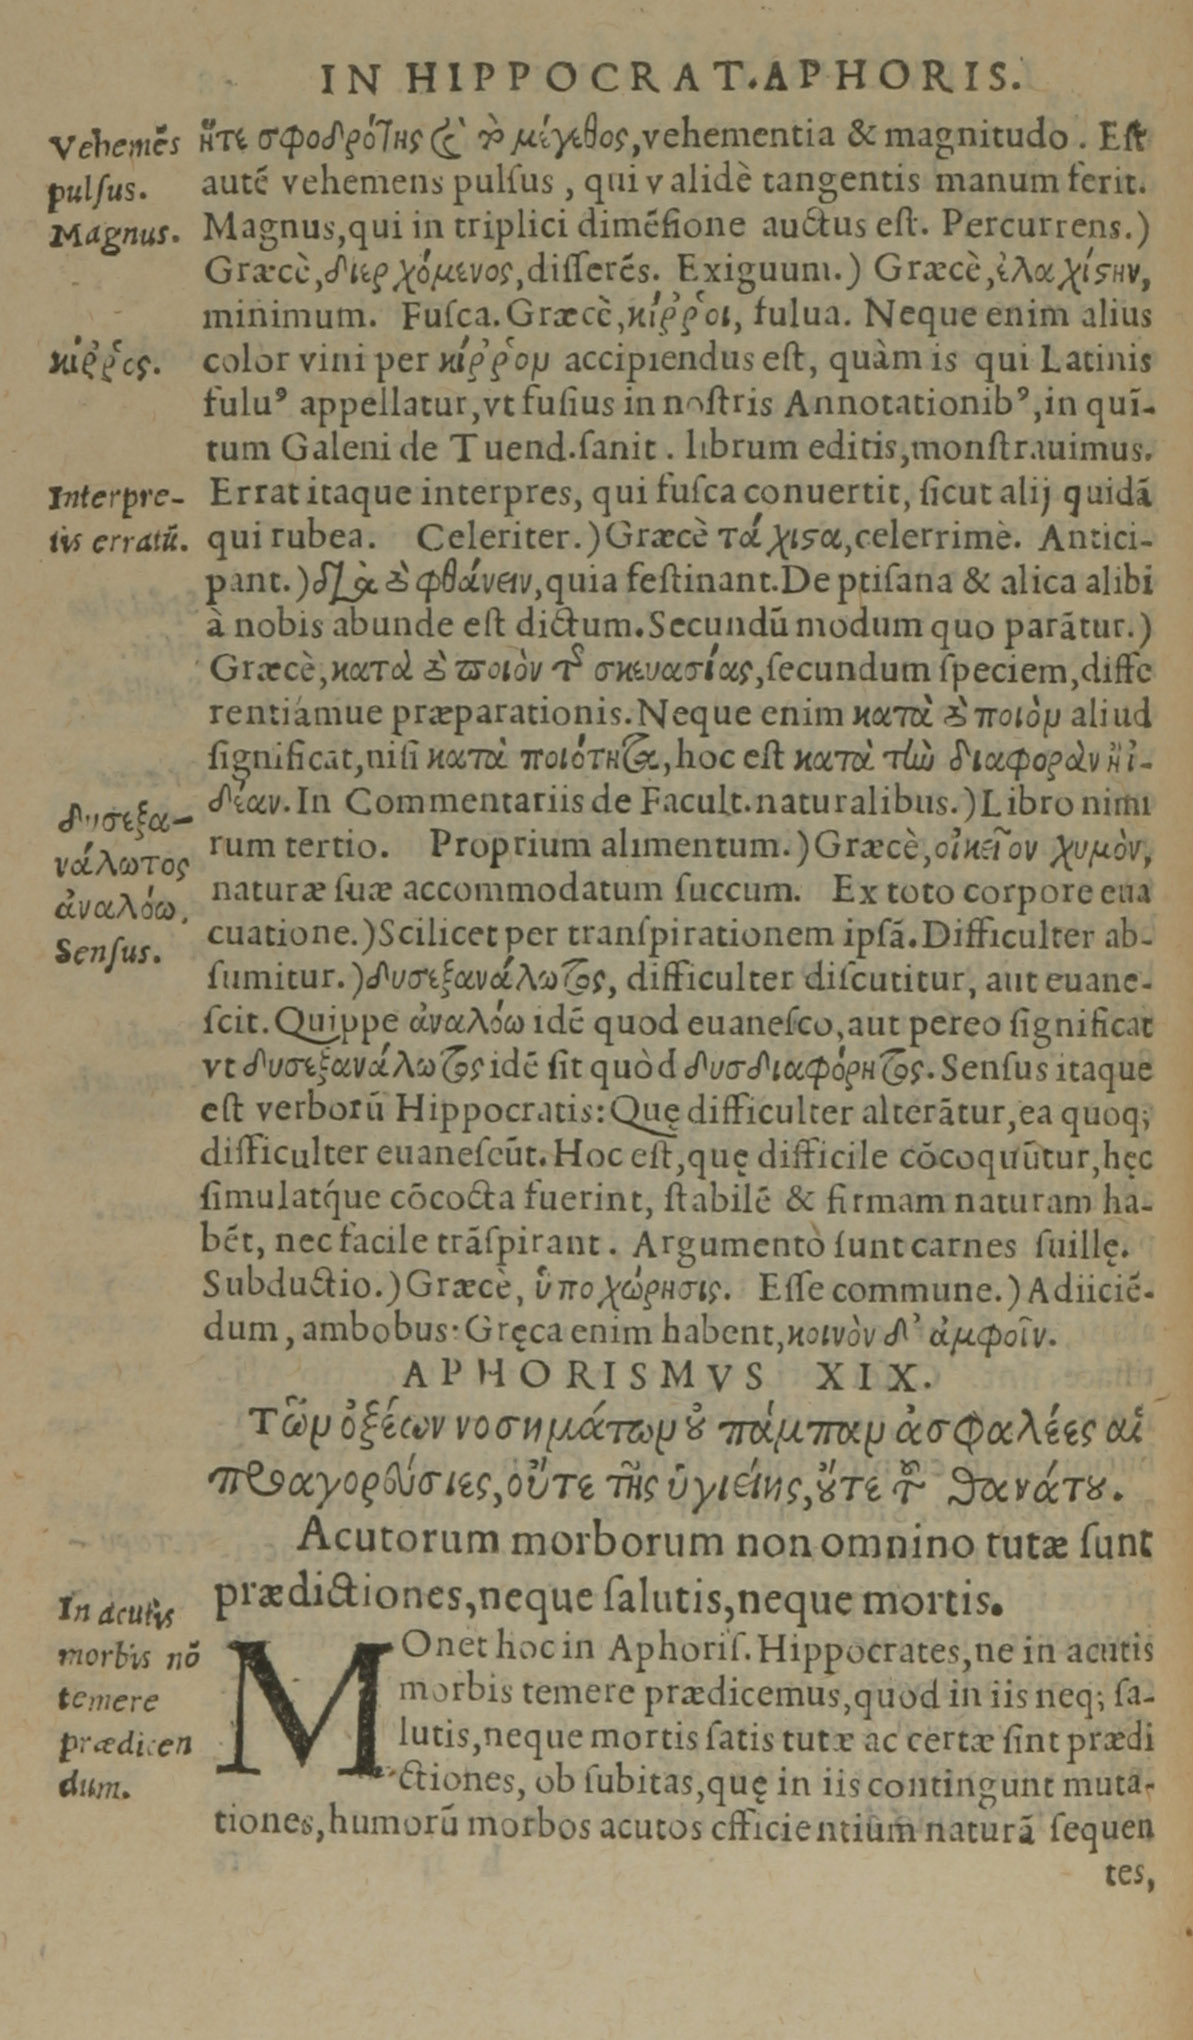 IN HIPPOCRAT.APHORIS.
Vehemẽs
pulſus.
Magnus.
κίῤῥος.
Interpre-
tis erratũ.
δυσεξα-
νάλωτος
ἀναλόω.
Senſus.
In acutis
morbis nõ
temere
prædicen
dum.
ἥτε σφοδρότης καὶ τὸ μέγεθος, vehementia & magnitudo. Eſt
autẽ vehemens pulſus, qui validè tangentis manum ferit.
Magnus, qui in triplici dimẽſione auctus eſt. Percurrens.)
Græcè, διερχόμενος, diſſerẽs. Exiguum.) Græcè, ἐλαχίστην,
minimum. Fuſca. Græcè, κίῤῥοι, fulua. Neque enim alius
color vini per κίῤῥον accipiendus eſt, quàm is qui Latinis
fuluꝰ appellatur, vt fuſius in noſtris Annotationibꝰ, in quĩ-
tum Galeni de Tuend. ſanit. librum editis, monſtrauimus.
Errat itaque interpres, qui fuſca conuertit, ſicut alij quidã
qui rubea. Celeriter.) Græcè τάχιστα, celerrimè. Antici-
pant.) διὰ τὸ φθάνειν, quia feſtinant. De ptiſana & alica alibi
à nobis abunde eſt dictum. Secundũ modum quo parãtur.)
Græcè, κατὰ τὸ ποιὸν τῆς σκευασίας, ſecundum ſpeciem, diffe
rentiámue præparationis. Neque enim κατὰ τὸ ποιὸν aliud
ſignificat, niſi κατὰ ποιότητα, hoc eſt κατὰ τὴν διαφορὰν ἢ ἰ-
δέαν. In Commentariis de Facult. naturalibus.) Libro nimi
rum tertio. Proprium alimentum.) Græcè, οἰκεῖον χυμὸν,
naturæ ſuæ accommodatum ſuccum. Ex toto corpore eua
cuatione.) Scilicet per tranſpirationem ipſã. Difficulter ab-
ſumitur.) δυσεξανάλωτος, difficulter diſcutitur, aut euane-
ſcit. Quippe ἀναλόω idẽ quod euaneſco, aut pereo ſignificat
vt δυσεξανάλωτος idẽ ſit quòd δυσδιαφόρητος. Senſus itaque
eſt verborũ Hippocratis: Quę difficulter alterãtur, ea quoq;
difficulter euaneſcũt. Hoc eſt, quę difficile cõcoquũtur, hęc
ſimulatq́ue cõcocta fuerint, ſtabilẽ & firmam naturam ha-
bẽt, nec facile trãſpirant. Argumentò ſunt carnes ſuillę.
Subductio.) Græcè, ὑποχώρησις. Eſſe commune.) Adiiciẽ-
dum, ambobus: Gręca enim habent, κοινὸν δ' ἀμφοῖν.
APHORISMVS XIX.
Τῶν ὀξέων νοσημάτων οὐ πάμπαν ἀσφαλέες αἱ
προαγορεύσιες, οὔτε τῆς ὑγιείης, οὔτε τοῦ θανάτου.
Acutorum morborum non omnino tutæ ſunt
prædictiones, neque ſalutis, neque mortis.
MOnet hoc in Aphoriſ. Hippocrates, ne in acutis
morbis temere prædicemus, quod in iis neq; ſa-
lutis, neque mortis ſatis tutæ ac certæ ſint prædi
ctiones, ob ſubitas, quę in iis contingunt muta-
tiones, humorũ morbos acutos efficientium naturã ſequen
tes,